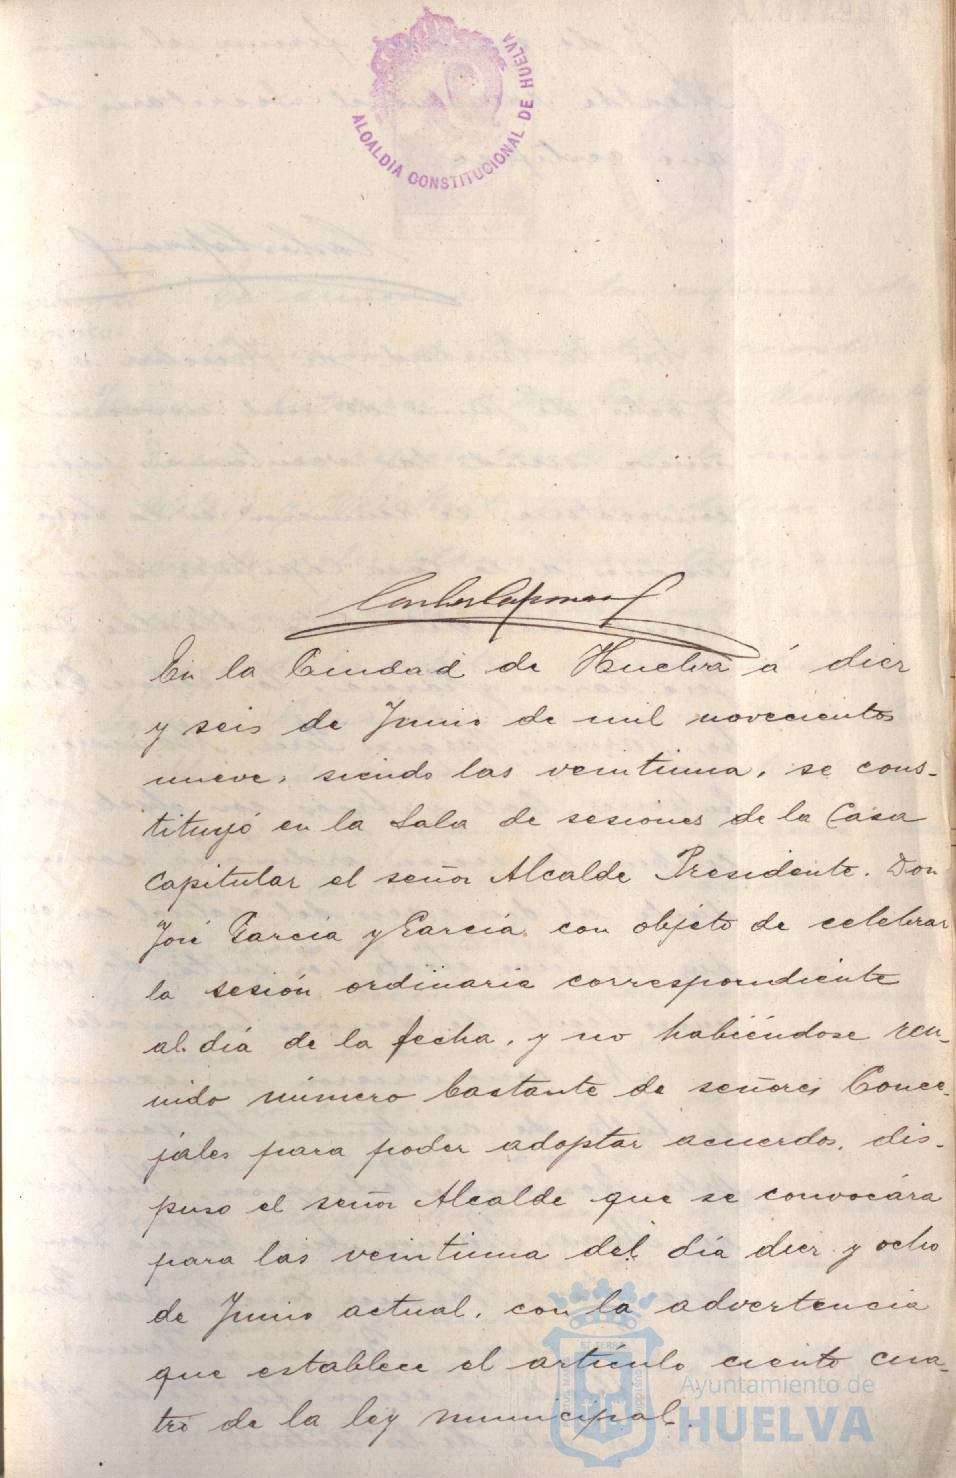 ALCALDIA CONSTITUCIONAL DE HUELVA
En la Ciudad de Huelva á diez
y seis de Junio de mil novecientos
nueve, siendo las veintiuna, se cons-
tituyó en la Sala de sesiones de la Casa
Capitular el señor Alcalde Presidente. Don
José García y García, con objeto de celebrar
la sesión ordinaria correspondiente
al día de la fecha, y no habiéndose reu-
nido número bastante de señores Conce-
jales para poder adoptar acuerdos, dis-
puso el señor Alcalde que se convocára
para las veintiuna del día diez y ocho
de Junio actual, con la advertencia
que establece el artículo ciento cua-
tro de la ley municipal.
Ayuntamiento de
HUELVA